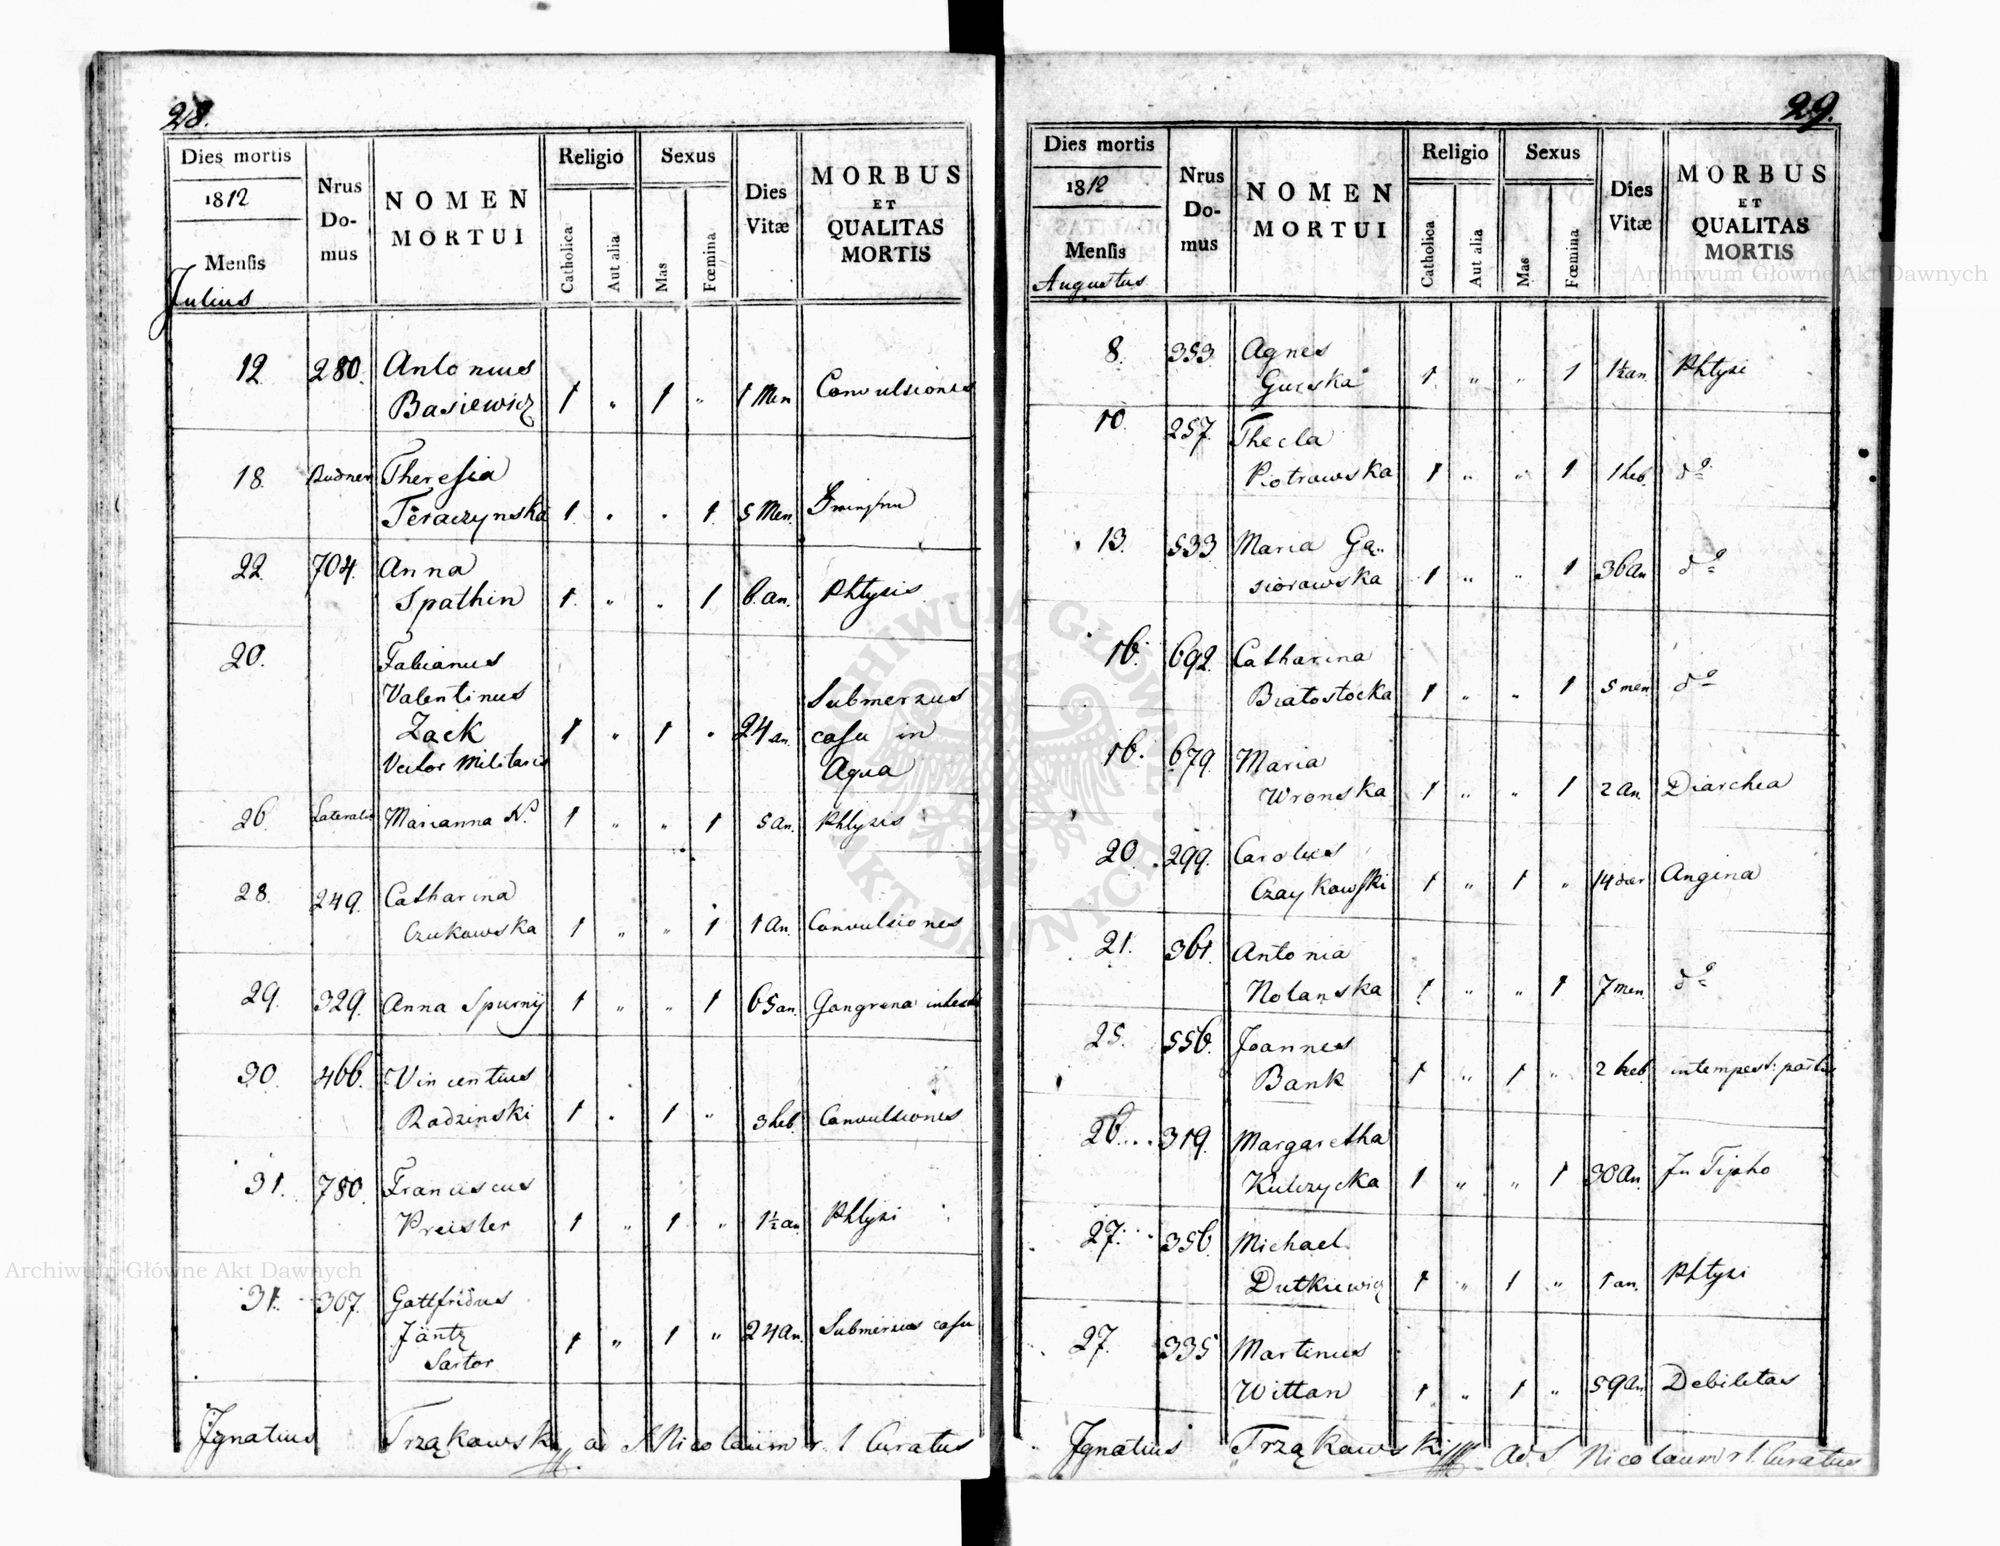 28.
Dies mortis
1812
Mensis
Julius
Nrus
Do-
mus
NOMEN
MORTUI
Religio
Catholica
Aut alia
Sexus
Mas
Fœmina
Dies
Vitæ
MORBUS
ET
QUALITAS
MORTIS
12 280. Antonius
Basiewicz 1 " 1 " 1 Men Convulsiones
18. Theresia
Teraczynska 1. " " 1. 5 Men.
22. 704. Anna
Spathin 1. " " 1 6.an. Phtysis
20. Fabianus
Valentinus
Zack 1 " 1 " 24 an.
Vector Militaris
Submerzus
casu in
Aqua
26. Marianna N. 1 " " 1 5 an. Phtysis
28. 249. Catharina
Czukowska 1 " " 1 1 An. Convulsiones
29. 329. Anna Spurnÿ 1 " " 1 65 an. Gangrena
30. 466. Vincentius
Radzinski 1 " 1 " 3 heb. Convulsiones
31. 780. Franciscus
Preisler 1 " 1 " 1½ an Phtysi
31. 307. Gottfridus
Jäntz
Sartor 1 " 1 " 24 An. Submerzus casu
Ignatius Trząkowski ad S Nicolaum r. l Curatus
29.
Dies mortis
1812
Mensis
Augustus
Nrus
Do-
mus
NOMEN
MORTUI
Religio
Catholica
Aut alia
Sexus
Mas
Fœmina
Dies
Vitæ
MORBUS
ET
QUALITAS
MORTIS
8. 353. Agnes
Gurska 1 " " 1 1½ an. Phtysi
10. 257. Thecla
Piotrowska 1 " " 1 1 heb. do
13. 533 Maria Ga..
siorowska 1 " " 1 36 an do
16. 692. Catharina
Białostocka 1 " " 1 5 men do
16. 679. Maria
Wronska 1 " " 1 2 an. Diarchea
20. 299. Carolus
Czaykowski 1 " 1 " 14 dier Angina
21. 361. Antonia
Nolanska 1 " " 1 7 men. do
25. 556. Joannes
Bank 1 " 1 " 2 heb. intempest: partus
26... 319. Margaretha
Kulczycka 1 " " 1 30 an. In Tipho
27. 356. Michael
Dutkiewicz 1 " 1 " 1 an. Phtysi
27. 335 Martinus
Wittan 1 " 1 " 59 an Debilitas
Ignatius Trząkowski ad S. Nicolaum r l. Curatus
Archiwum Główne Akt Dawnych
Archiwum Główne Akt Dawnych
ARCHIWUM GŁÓWNE AKT DAWNYCH